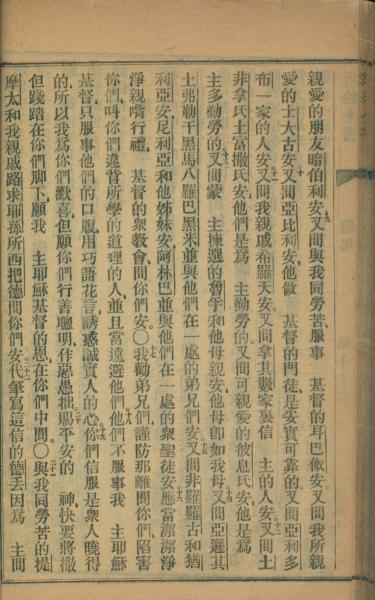 親愛的朋友暗伯利安又問與我同勞苦服事　基督的耳巴儌安又問我所親
愛的士大古安又問亞比利安他做　基督的門徒是妥實可靠的又問亞利多
布一家的人安又問我親戚希羅天安又問拿其數家裏信　主的人安又問土
非拿氏土富撒氏安他們是爲　主勤勞的又問可親愛的彼息氏安他是爲
主多勤勞的又問蒙　主揀選的魯孚和他母親安他母卽如我母又問亞遜其
土弗勒干黑馬八羅巴黑米並與他們在一處的弟兄們安又問非羅羅古和猶
利亞安尼利亞和他姊妹安阿林巴並與他們在一處的衆聖徒安應當潔潔淨
淨親嘴行禮　基督的衆教會問你們安○我勸弟兄們謹防那離間你們陷害
你們叫你們違背所學的道理的人並且當遠避他們他們不服事我　主耶穌
基督只服事他們的口腹用巧語花言誘惑誠實人的心你們信服是衆人曉得
的所以我爲你們歡喜但願你們行善聰明作惡愚拙賜平安的　神快要將撒
但踐踏在你們脚下願我　主耶穌基督的恩在你們中間○與我同勞苦的提
摩太和我親戚路求耶孫所西把德問你們安代筆寫這信的德丟因爲　主問